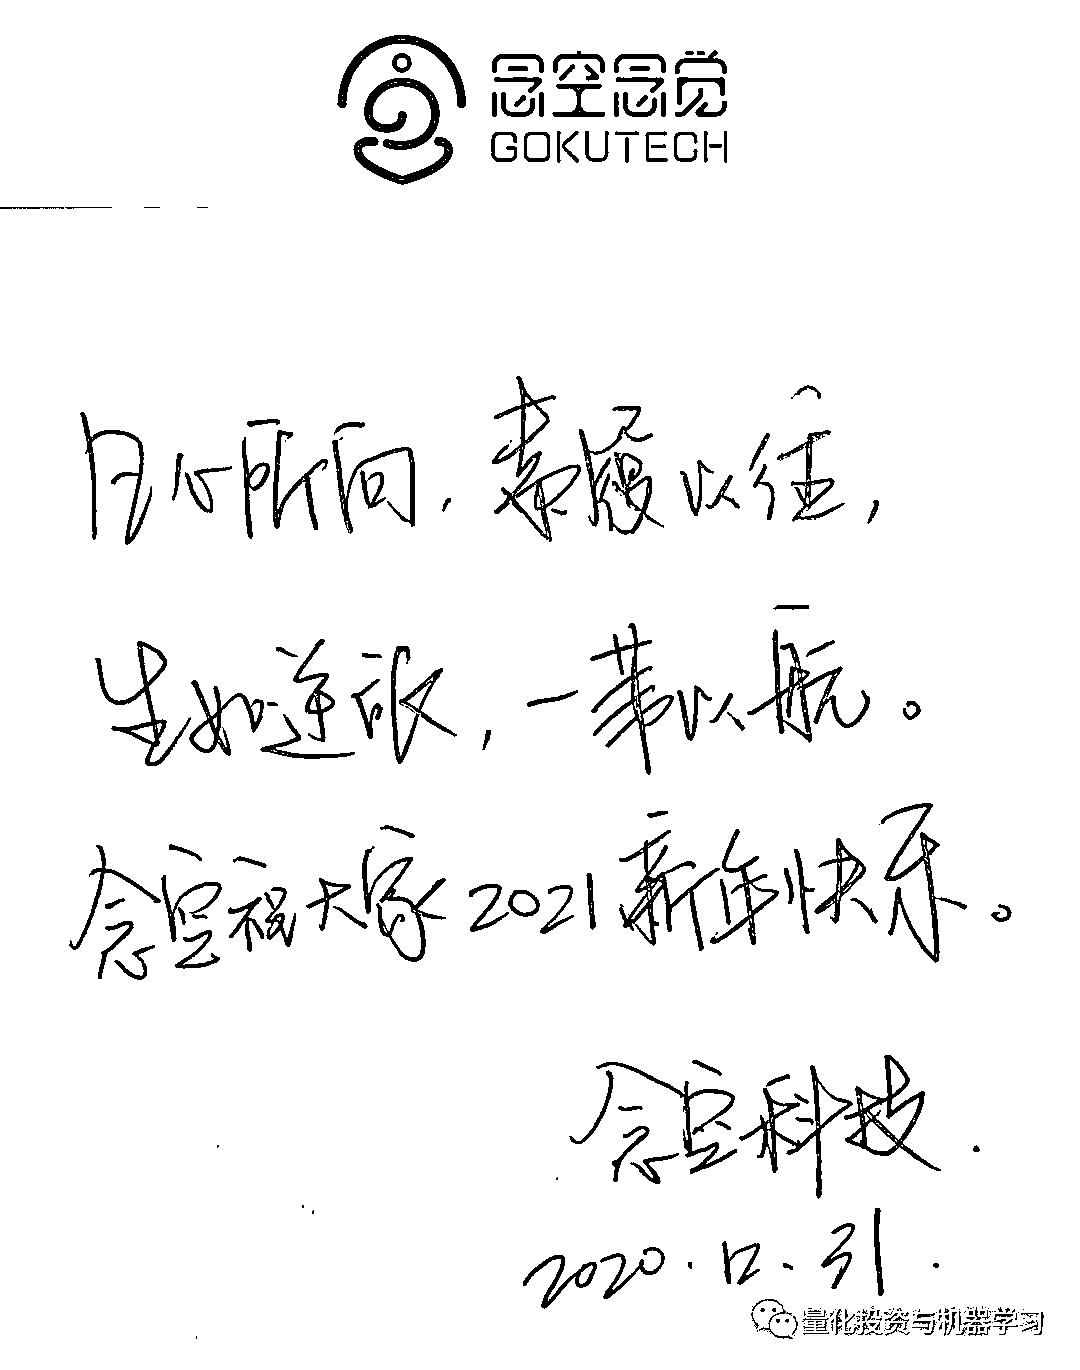 念空念觉
GOKUTECH
日心所向,素履以往,
生如逆旅,一苇以航。
念空祝大家2021新年快乐。
念空科技.
2020.12.31.
量化投资与机器学习